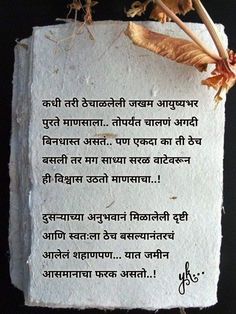 कधी तरी ठेचाळलेली जखम आयुष्यभर
पुरते माणसाला.. तोपर्यंत चालणं अगदी
बिनधास्त असतं.. पण एकदा का ती ठेच
बसली तर मग साध्या सरळ वाटेवरून
ही विश्वास उठतो माणसाचा..!
दुसऱ्याच्या अनुभवानं मिळालेली दृष्टी
आणि स्वतःला ठेच बसल्यानंतरचं
आलेलं शहाणपण... यात जमीन
आसमानाचा फरक असतो..!